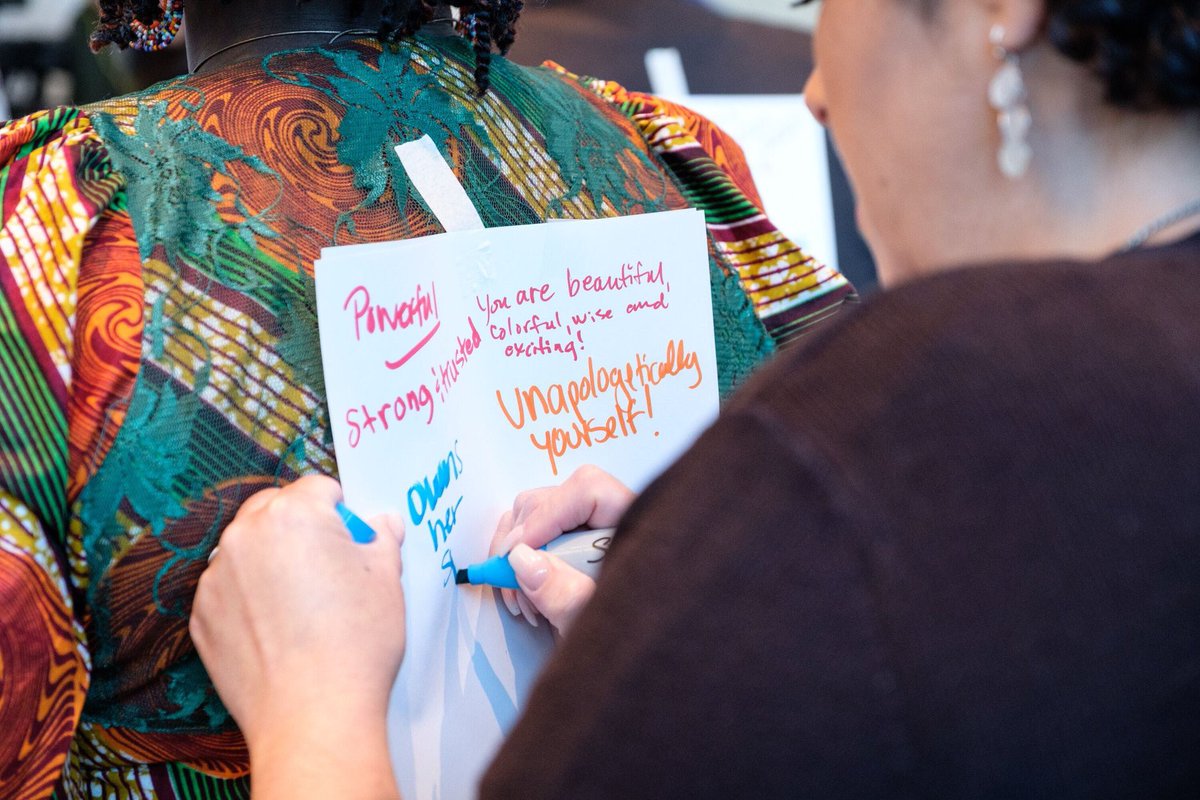 Powerful
Strong & trusted
You are beautiful,
colorful, wise and
exciting!
Unapologetically
yourself!
Owns
her